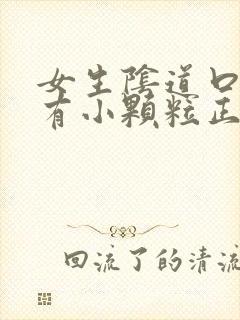 女生陰道口
有小顆粒正
回流了的清流